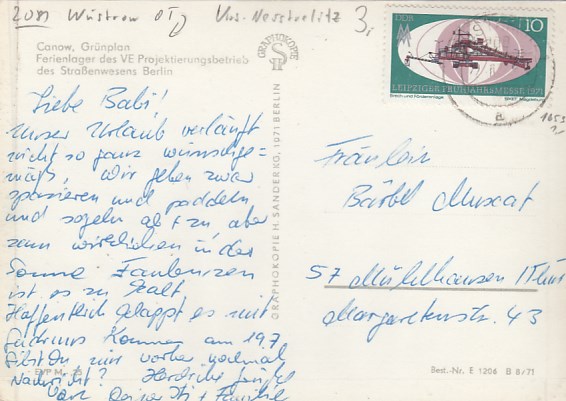 2081 Wüstrow OT)
Krs. Neustrelitz
3,
Canow, Grünplan
Ferienlager des VE Projektierungsbetrieb
des Straßenwesens Berlin
GRAPHOKOPIE
SH
DDR
10
LEIPZIGER FRÜHJAHRSMESSE 1971
Liebe Babi!
Unser Urlaub verläuft
nicht so ganz wunschge=
mäß. Wir gehen zwar
spazieren und paddeln
und segeln ab + zu aber
zum wirklichen in der
Sonne Faulenzen
ist es zu kalt.
Hoffentlich klappt es mit
kommen am 19.7.
Gibst Du mir vorher nochmal
Nachricht? Herzliche Grüße
+ Familie
GRAPHOKOPIE H. SANDER KG, 1071 BERLIN
Fräulein
Bärbel Muscat
57 Mühlhausen /Thür
Margaretenstr. 43
EVP M -,25
Best.-Nr. E 1206 B 8/71